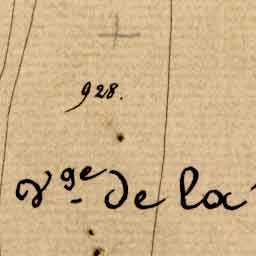 928.
Vge de la